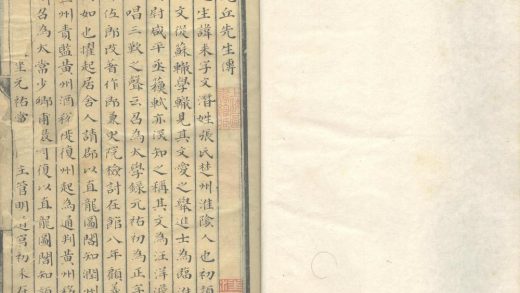 丘先生傳
生諱耒字文潛姓張氏楚州淮陰人也初
文從蘇轍學轍見其文愛之舉進士為臨淮
尉咸平丞蘇軾亦深知之稱其文為汪洋
唱三歎之聲云召為太學錄元祐初為正
郎改著作郎兼史院檢討在館八年顧義
如也擢起居舍人請郡以直龍圖閣知潤州
州責監黃州酒稅徙復州起為通判黃州
召為太常少卿甫復以直龍圖閣知
坐元祐黨 主管明道宮初耒在